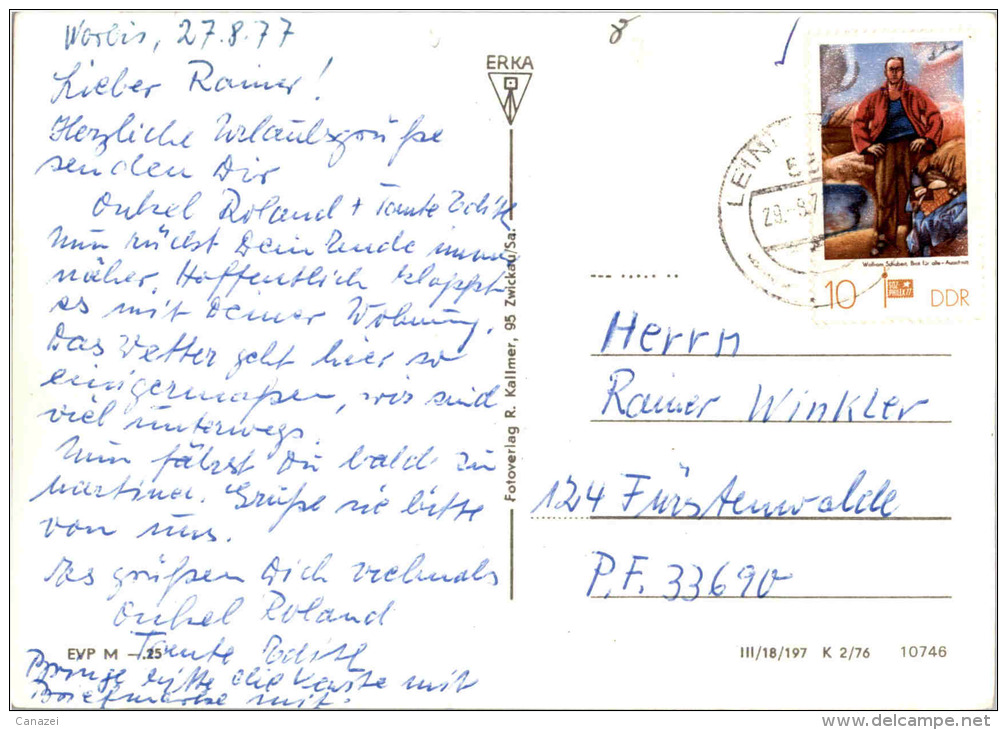 Worbis, 27.8.77
Lieber Rainer!
Herzliche Urlaubsgrüße
senden Dir
Onkel Roland + Tante Edith
Nun rückt Dein Ende immer
näher. Hoffentlich klappt
es mit Deiner Wohnung.
Das Wetter geht hier so
einigermaßen, wir sind
viel unterwegs.
Nun fährst Du bald zu
Martina. Grüße sie bitte
von uns.
Es grüßen Dich vielmals
Onkel Roland
Tante Edith
Bringe bitte die Karte mit
Briefmarke mit.
EVP M –.25
ERKA
Fotoverlag R. Kallmer, 95 Zwickau/Sa.
LEIN
29.-8.7
Wolfram Schubert, Brot für alle - Ausschnitt
10
SOZ
PHILEX 77
DDR
Herrn
Rainer Winkler
124 Fürstenwalde
P.F. 33690
III/18/197 K 2/76 10746
Canazei
www.delcampe.net